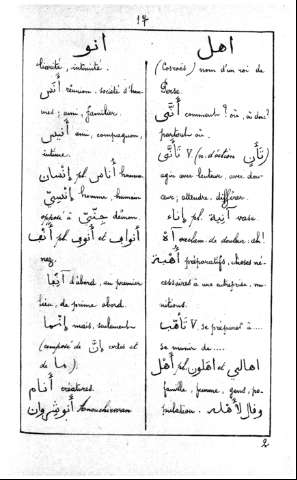 17
انو
liarité, intimité.
أُنْس réunion, société d'hom-
mes; ami, familier.
أَنِيس ami, compagnon,
intime.
إِنْسَان pl. أُنَاس homme.
إِنْسِيّ homme, humain
opposé à جِنِّيّ démon.
أَنْف pl. أُنُوف et آنواف
nez.
آنِفًا d'abord, au premier
lieu, de prime abord.
إِنَّمَا mais, seulement
(composé de إِنَّ certes et
de مَا).
أَنَام créatures.
أَنُوشِرْوَان Anouchirwan
اهل
(Cosroès) nom d'un roi de
Perse.
أَنَّى comment? où, où donc?
partout où.
تَأَنَّى V (n. d'action تَأَنٍّ)
agir avec lenteur, avec dou-
ceur; attendre, différer.
إِنَاء pl. آنِيَة vase
آهْ exclam. de douleur: ah!
أُهْبَة préparatifs, choses né-
cessaires à une entreprise, mu-
nitions.
تَأَهَّبَ V. se préparer à....
se munir de....
أَهْل pl. اهلون et اهالي
famille, femme, gent, po-
pulation. وقال لأهله
2